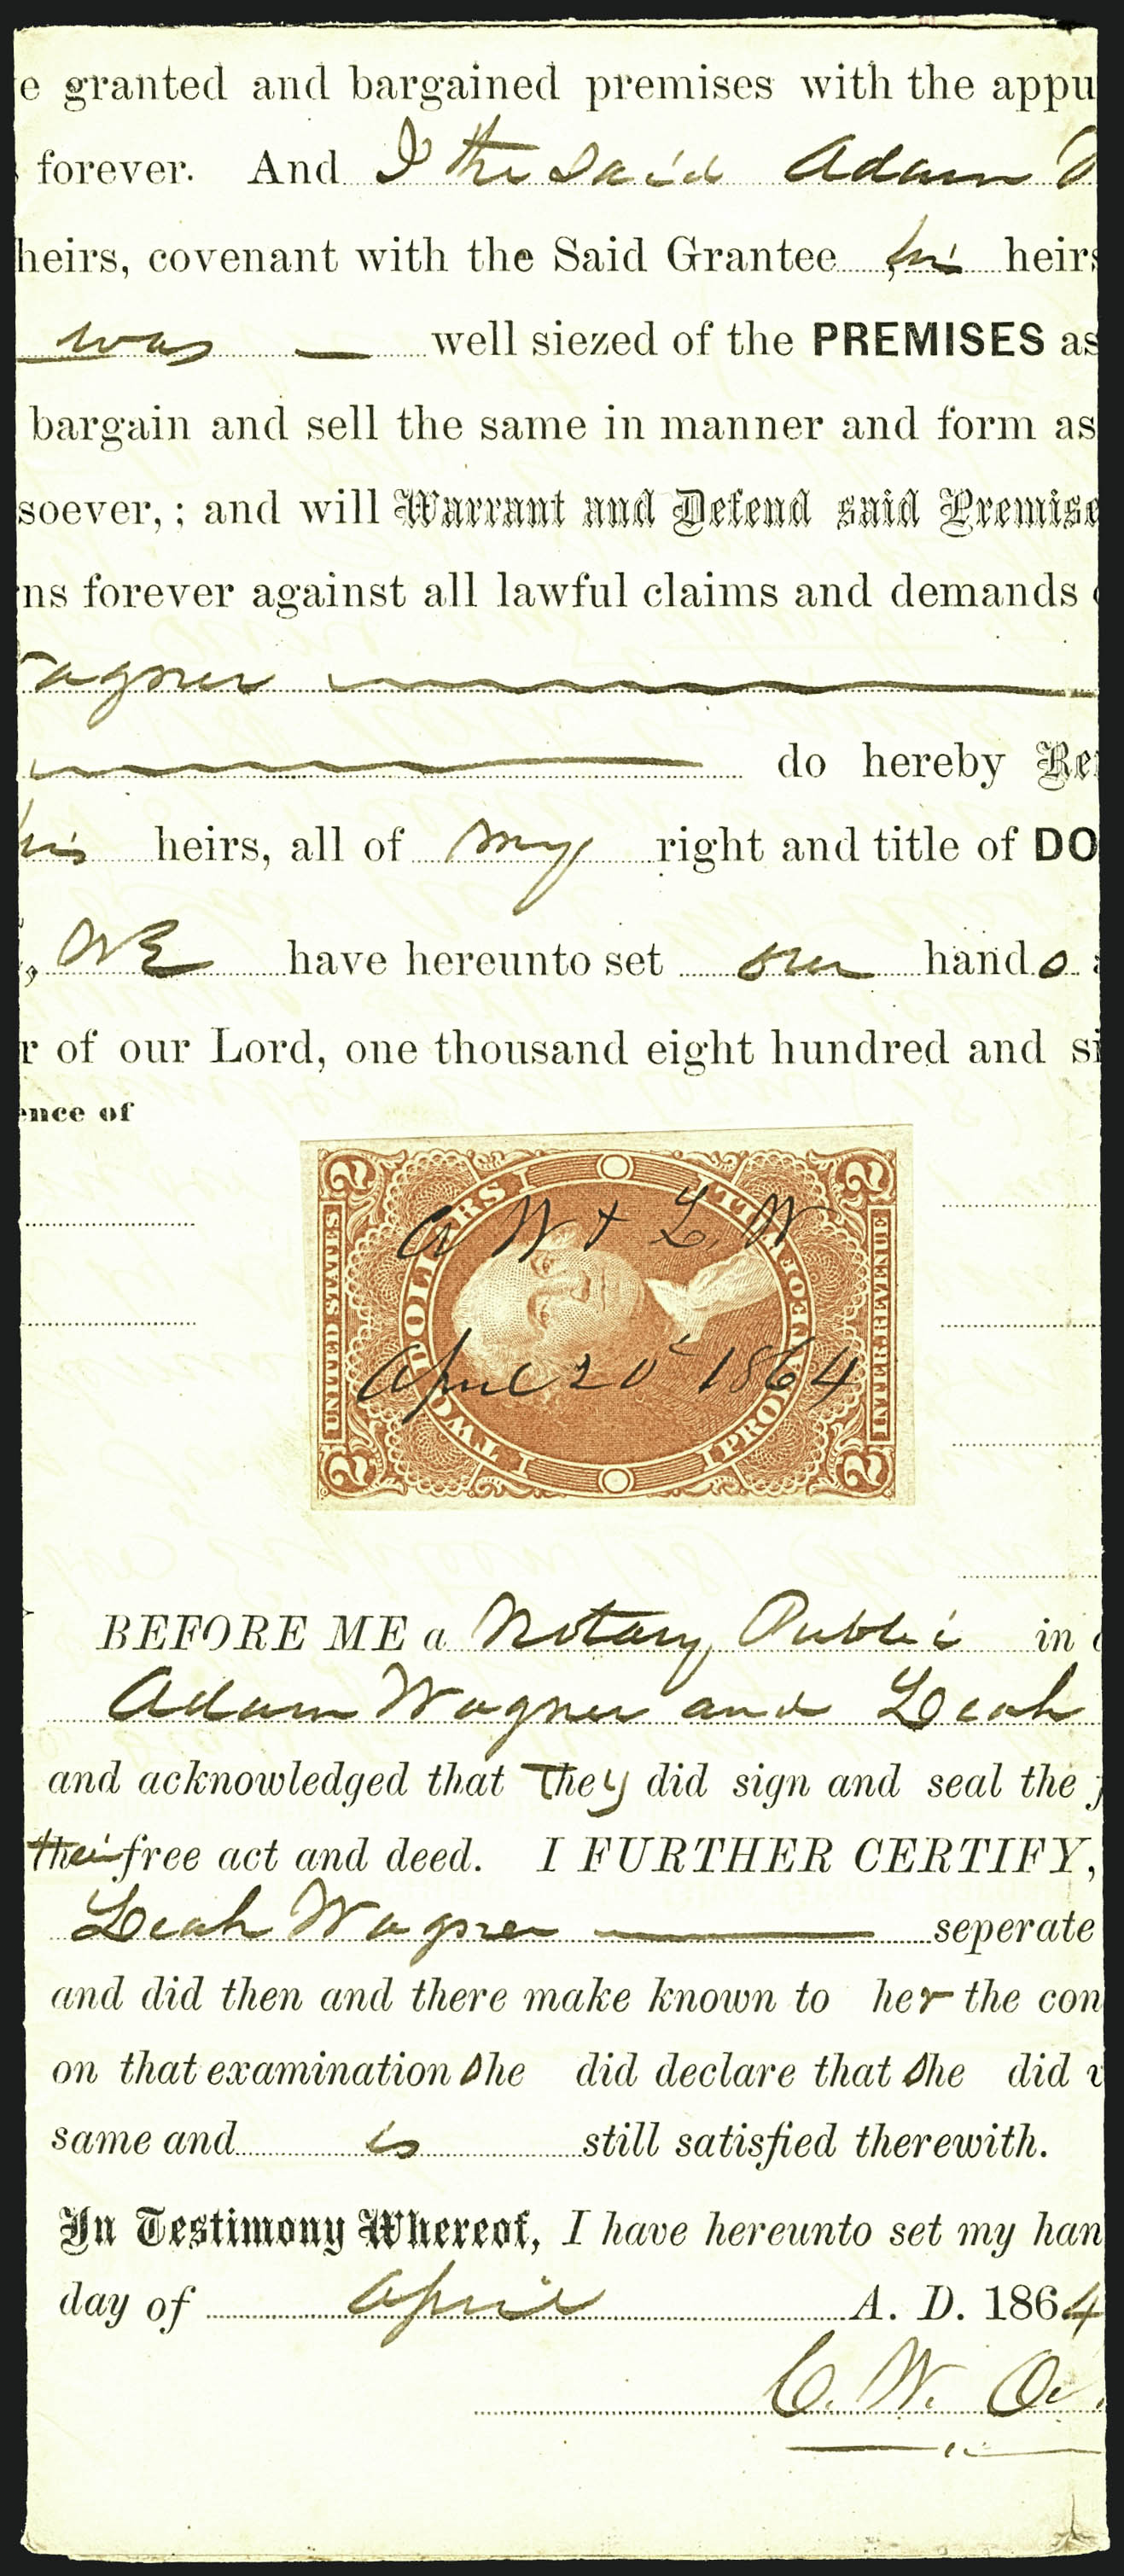 e granted and bargained premises with the appu
forever. And I the said Adam
heirs, covenant with the Said Grantee his heirs
was well siezed of the PREMISES as
bargain and sell the same in manner and form as
soever, ; and will Warrant and Defend said Premise
ns forever against all lawful claims and demands
agner
do hereby Re
his heirs, all of my right and title of DO
, WE have hereunto set our hands
r of our Lord, one thousand eight hundred and si
ence of
2 2
UNITED STATES
TWO DOLLARS
PROBATE OF WILL
INTER. REVENUE
2 2
A W & L. W
April 20 1864
BEFORE ME a Notary Public in
Adam Wagner and Leah
and acknowledged that They did sign and seal the
their free act and deed. I FURTHER CERTIFY,
Leah Wagner seperate
and did then and there make known to her the con
on that examination She did declare that She did
same and is still satisfied therewith.
In Testimony Whereof, I have hereunto set my han
day of April A. D. 1864
C. W.